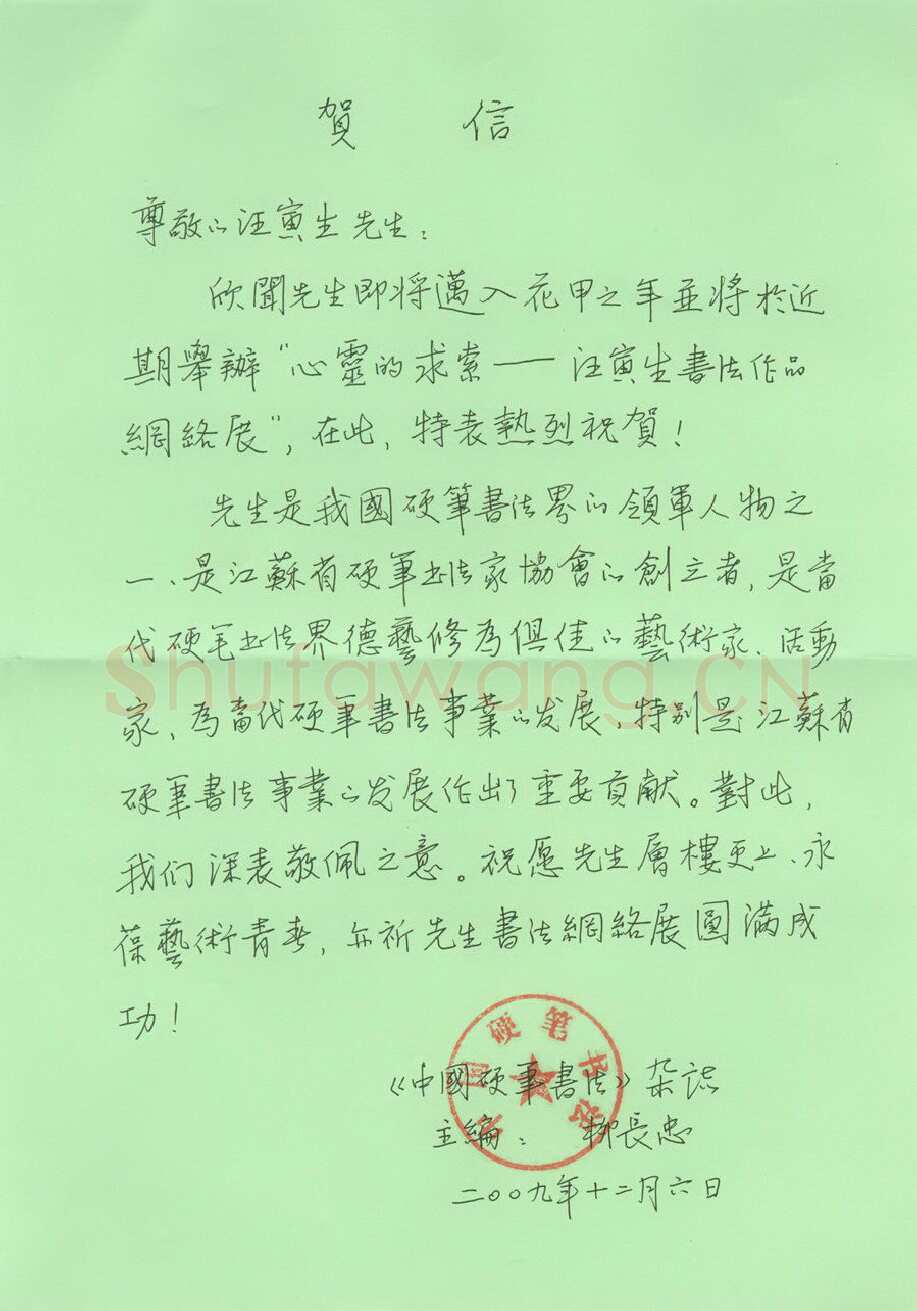 賀 信
尊敬的汪寅生先生：
欣聞先生即将邁入花甲之年並将於近
期舉辦“心靈的求索——汪寅生書法作品
網絡展”，在此，特表熱烈祝賀！
先生是我國硬筆書法界的領軍人物之
一、是江蘇省硬筆书法家協會的創立者，是當
代硬笔书法界德藝修為俱佳的藝術家、活動
家、為當代硬筆書法事業的发展，特别是江蘇省
硬筆書法事業的发展作出了重要貢献。對此，
我们深表敬佩之意。祝愿先生層樓更上、永
葆藝術青春，亦祈先生書法網絡展圓滿成
功！
《中國硬筆書法》杂誌
主編：柳長忠
二00九年十二月六日
中国硬笔书法
Shufawang.CN